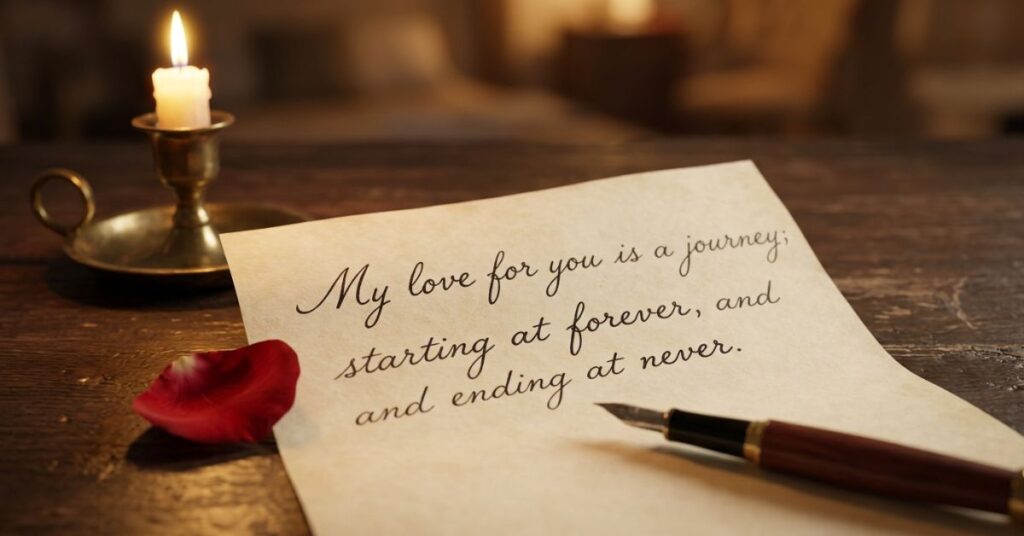 My love for you is a journey;
starting at forever, and
and ending at never.